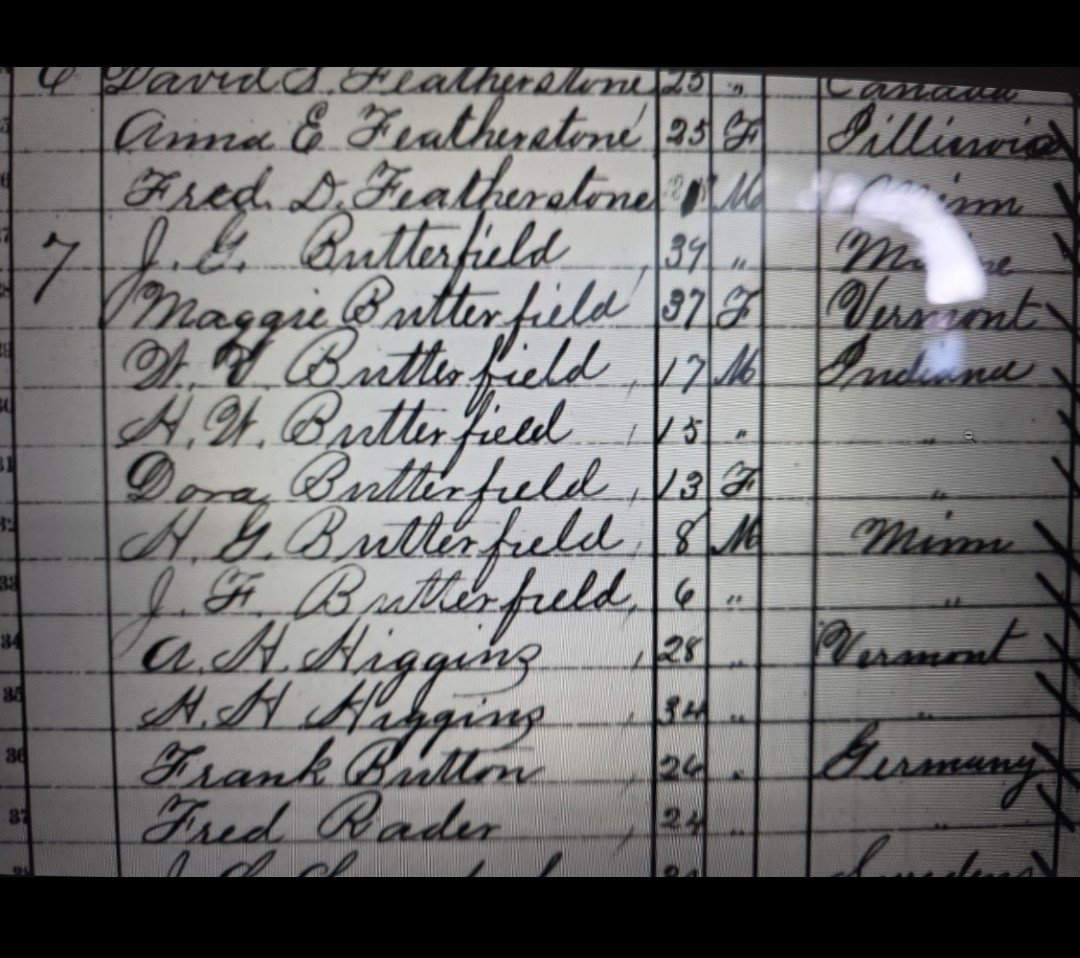 6 David S. Featherstone 25 " Canada
Anna E Featherstone 25 F Illinois
26 Fred. D. Featherstone M Minn
27 7 J. G. Butterfield 39 "
Maggie Butterfield 37 F Vermont
29 Butterfield 17 M Indiana
30 H. W. Butterfield 15 " "
31 Dora Butterfield 13 F "
32 H. G. Butterfield 8 M Minn
33 J. F. Butterfield 6 " "
34 A. H. Higgins 28 " Vermont
35 H. H Higgins 34 " "
36 Frank Button 26 " Germany
37 Fred Rader 24 " "
Sweden